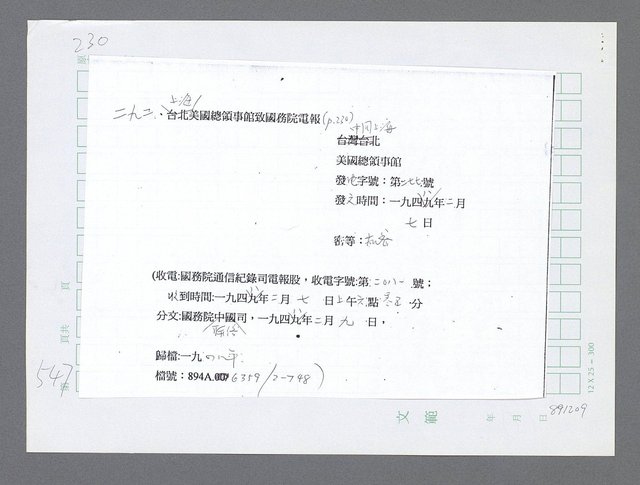 230
上海
二九二、台北美國總領事館致國務院電報(p.230)
中国上海
台灣台北
美國總領事館
發電字號：第二七七號
發文時間：一九四九年二月
七日
密等：机密
(收電:國務院通信紀錄司電報股，收電字號:第二〇八一號；
收到時間:一九四九年二月七日上午六點 分
分文:國務院中國司，一九四九年二月九日，
歸檔:一九四八年
檔號：894A.00/6359/2-748)
頁
頁共
547
第
文範
年 月 日
891209
12 X 25 - 300